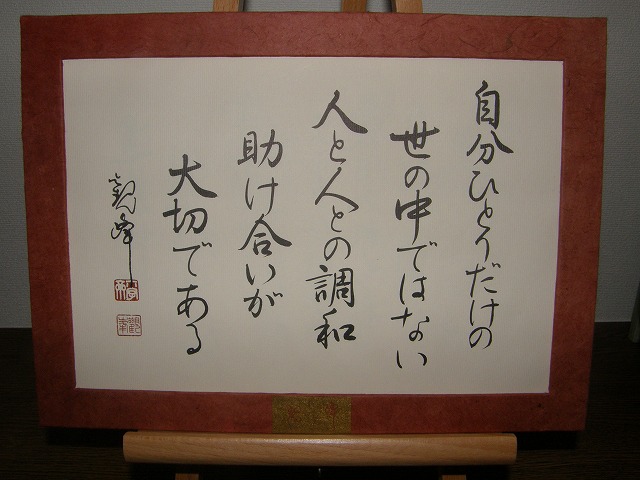 自分ひとりだけの
世の中ではない
人と人との調和
助け合いが
大切である
観峰